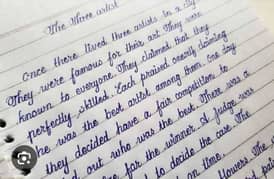 The three artist
Once there lived three artists in a city
They were famous for their art. They were
known to everyone. They claimed that they
perfectly skilled. Each praised overly claiming
he was the best artist among them. one day
they decided have a fair competition to
out who was the best. There was a
for the winner. A judge was
to decide the case. The
on time.
flowers. The